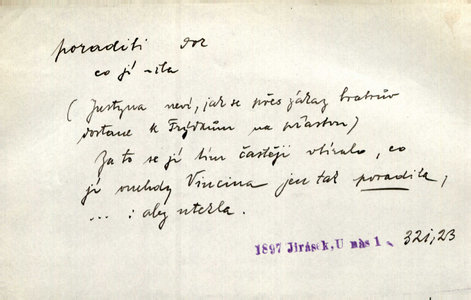 poraditi dok
co jí -ila
(Justyna neví, jak se přes zákaz bratrův
dostane k Frýdkům na přástvu)
Za to se jí tím častěji vtíralo, co
jí onehdy Vincina jen tak poradila,
... : aby utekla.
1897 Jirásek, U nás 1, 321,23